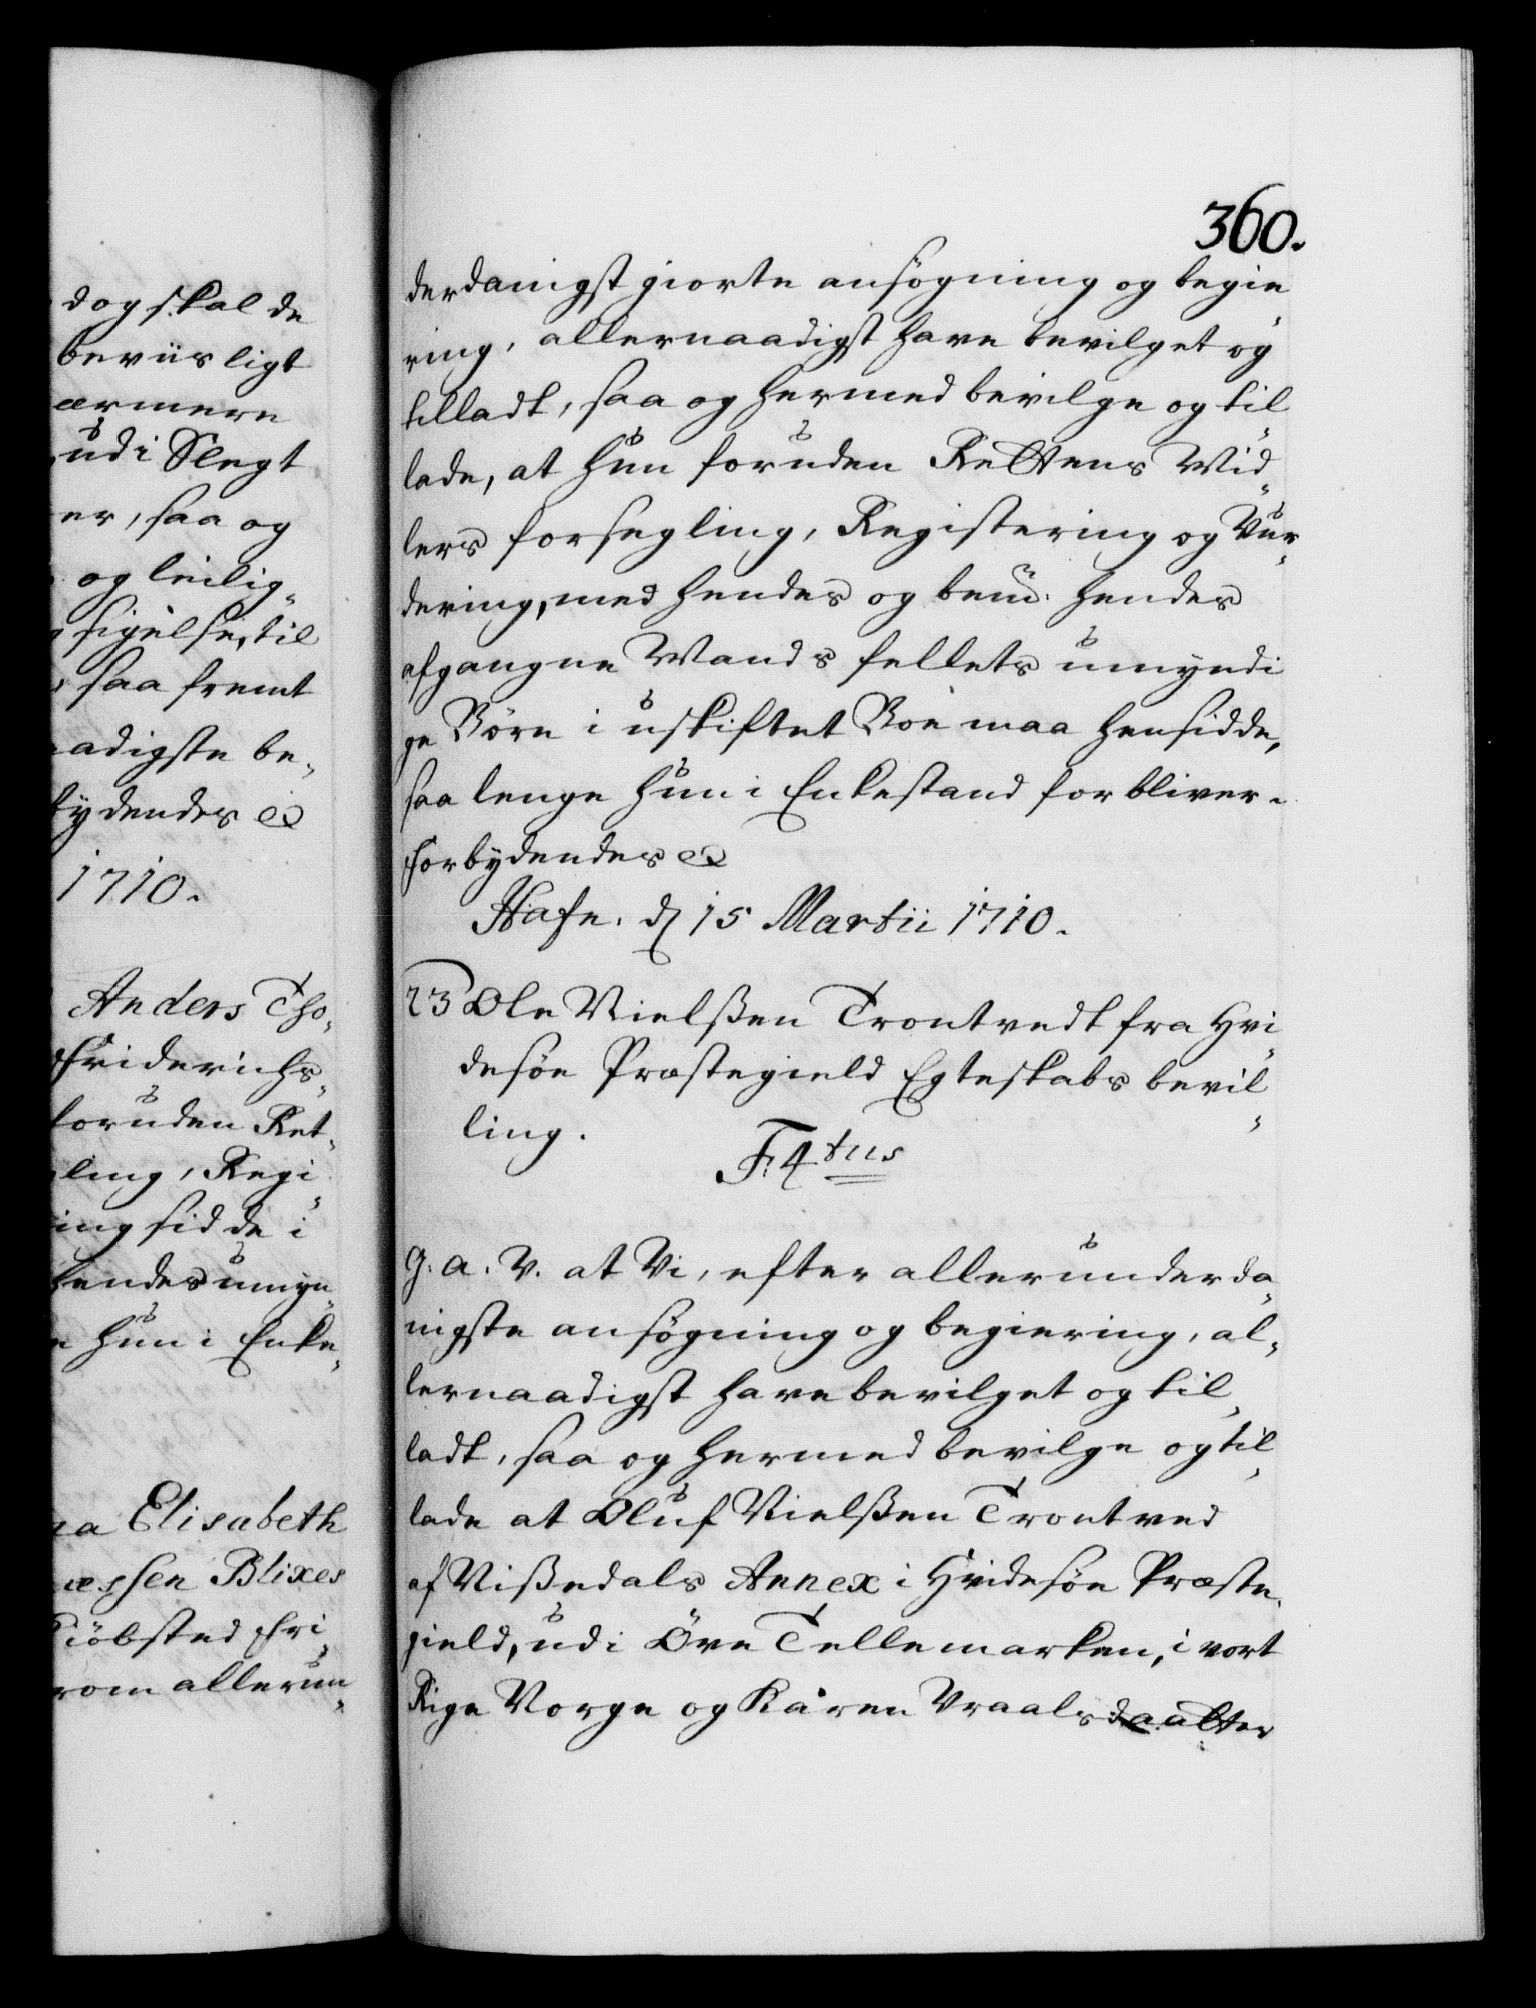 dog skal de
beviisligt
ermere
udi Slegt
er, saa og
og leilig„
sigelse, til
saa fremt
aadigste be„
bydendes &
1710.
Anders Tho„
Friderichs„
foruden Ret„
ling, Regi„
ing sidde i
hendes umyn„
hun i Enke„
na Elisabeth
æssen Blixes
Kiöbsted Fri„
rom allerun„
360.
derdanigst giorte ansögning og begie„
ring, allernaadigst have bevilget og
tilladt, saa og hermed bevilge og til„
lade, at hun foruden Rettens Mid„
lers forsegling, Registering og Vur„
dering, med hendes og bem̃. hendes
afgangne Mands fellets umyndi
ge Börn i uskiftet Boe maa hensidde,
saa lenge hun i Enkestand forbliver.
Forbydendes &
Hafn. d 15 Martii 1710.
23 Ole Nielßen Trontvedt fra Hvi„
desöe Præstegield Egteskabs bevil„
ling.
F. 4tus
G. A. V. at Vi, efter allerunderda„
nigste ansøgning og begiering, al„
lernaadigst have bevilget og til„
ladt, saa og hermed bevilge og til„
lade at Oluf Nielßen Trontved
af Nißedals Annex i Hvidesöe Præste„
gield, udi Övre Tellemarken, i vort
Rige Norge og Karen Vraalsdaatter